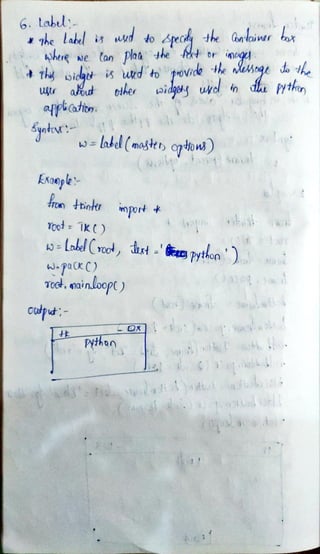 6. Label:-
* The Label is used to specify the Container box
where we can place the text or images
* This widget is used to provide the message to the
user about other widgets used in the python
application.
Syntax:-
w = label (master, options)
Example:-
from tkinter import *
root = TK ( )
w = Label (root, text = ' python ' )
w.pack ( )
root.mainloop( )
output:-
tk
python